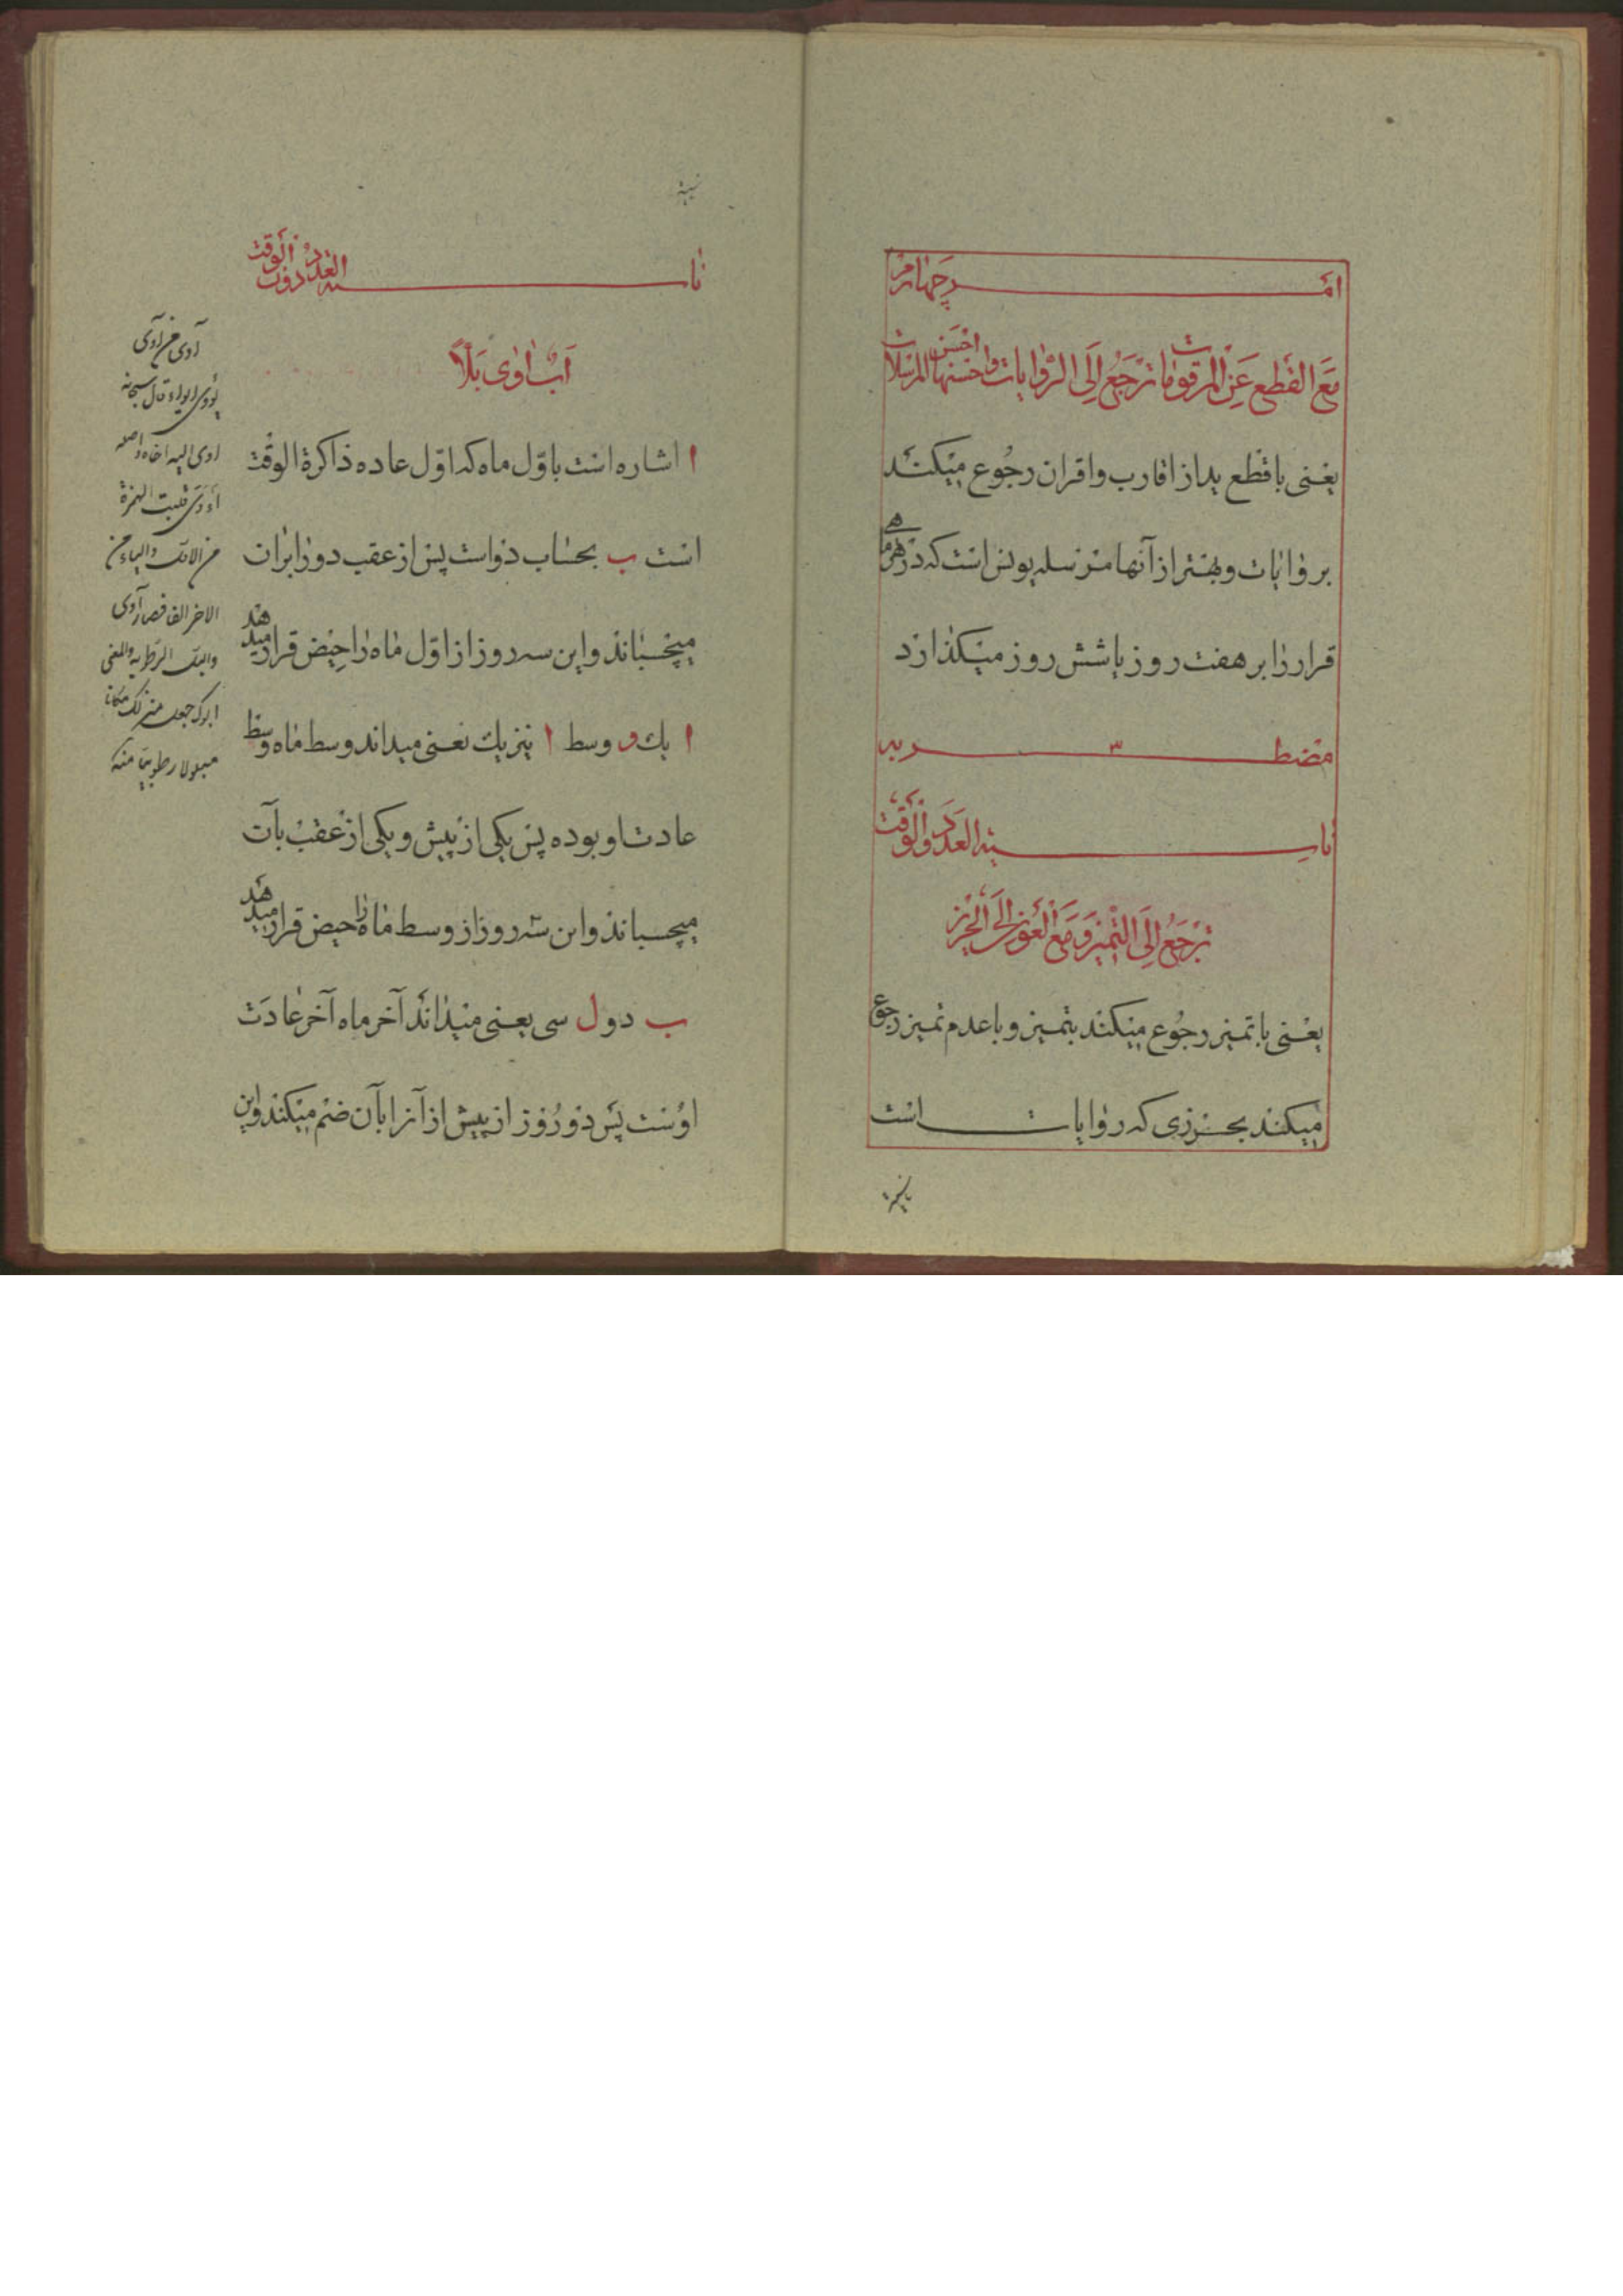 امر چهارم
مع القطع عن المرقومات ترجع إلى الروايات واحسنها المرسلات
احسن
یعنی با قطع ید از اقارب و اقران رجوع میکند
بروایات و بهتر از آنها مرسله یونس است که در هر ماهی
قرار را بر هفت روز یا شش روز میگذارد
مضطربه ۳
ناسیة العدد والوقت
ترجع إلى التمیز و مع العوز إلى الحرز
یعنی با تمیز رجوع میکند بتمیز و با عدم تمیز رجوع
میکند بحرزی که روایات است
ناسیه
ناسیه العدد دون الوقت
آب اوى بللا
ا اشاره است باوّل ماه که اوّل عاده ذاکرة الوقت
است ب بحساب دو است پس از عقب دو را بران
میچسباند و این سه روز از اوّل ماه را حیض قرار میدهد
ا یك و وسط ا نیز یك یعنی میداند وسط ماه وسط
عادت او بوده پس یکی از پیش و یکی از عقب بآن
میچسباند و این سه روز از وسط ماه را حیض قرار میدهد
ب دو ل سی یعنی میداند آخر ماه آخر عادت
اوست پس دو روز از پیش از آنرا بآن ضم میکند و این
آوى من أوى
يؤوى ايواء قال سبحانه
اوى اليه اخاه واصله
أءوى قلبت الهمزة
من الالف والياء من
الاخر الفا فصار آوى
والبلل الرطوبة والمعنى
ابوك جعل منزلك مكانا
مبلولا رطوبيا منه